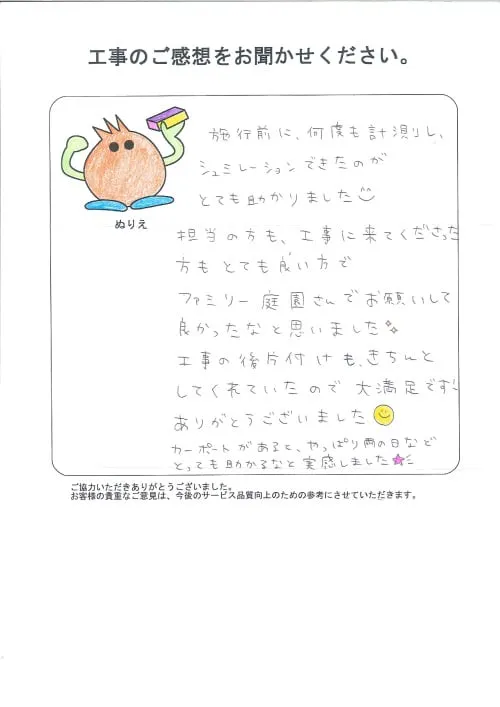 工事のご感想をお聞かせください。
ぬりえ
施行前に、何度も計測し、
シュミレーションできたのが
とても助かりました
担当の方も、工事に来てくださった
方もとても良い方で
ファミリー庭園さんでお願いして
良かったなと思いました
工事の後片付けも、きちんと
してくれていたので大満足です!
ありがとうございました
カーポートがあると、やっぱり雨の日など
とっても助かるなと実感しました
ご協力いただきありがとうございました。
お客様の貴重なご意見は、今後のサービス品質向上のための参考にさせていただきます。